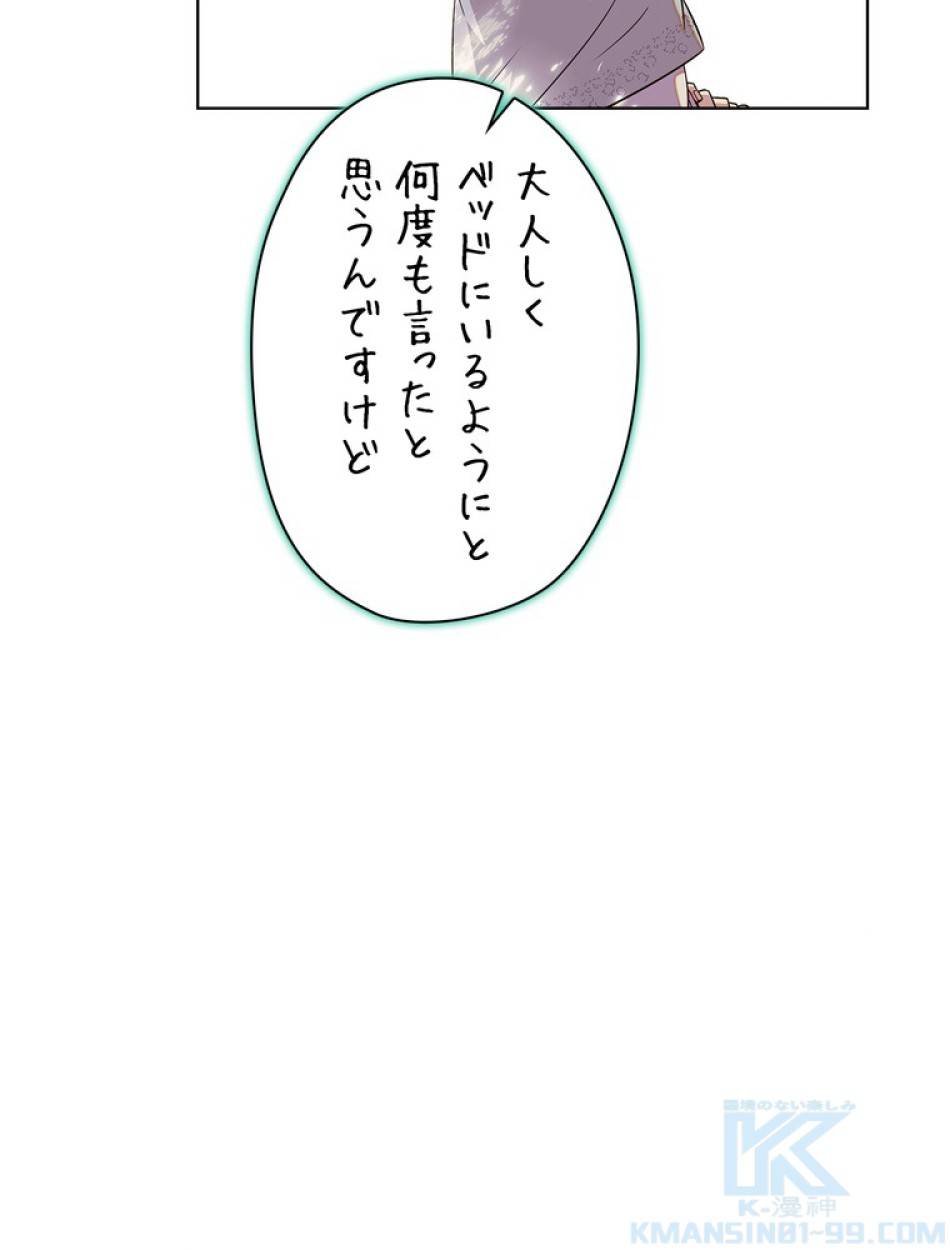 大人しく
ベッドにいるようにと
何度も言ったと
思うんですけど
境のない楽しみ
K-漫神
KMANSIN01~99.COM